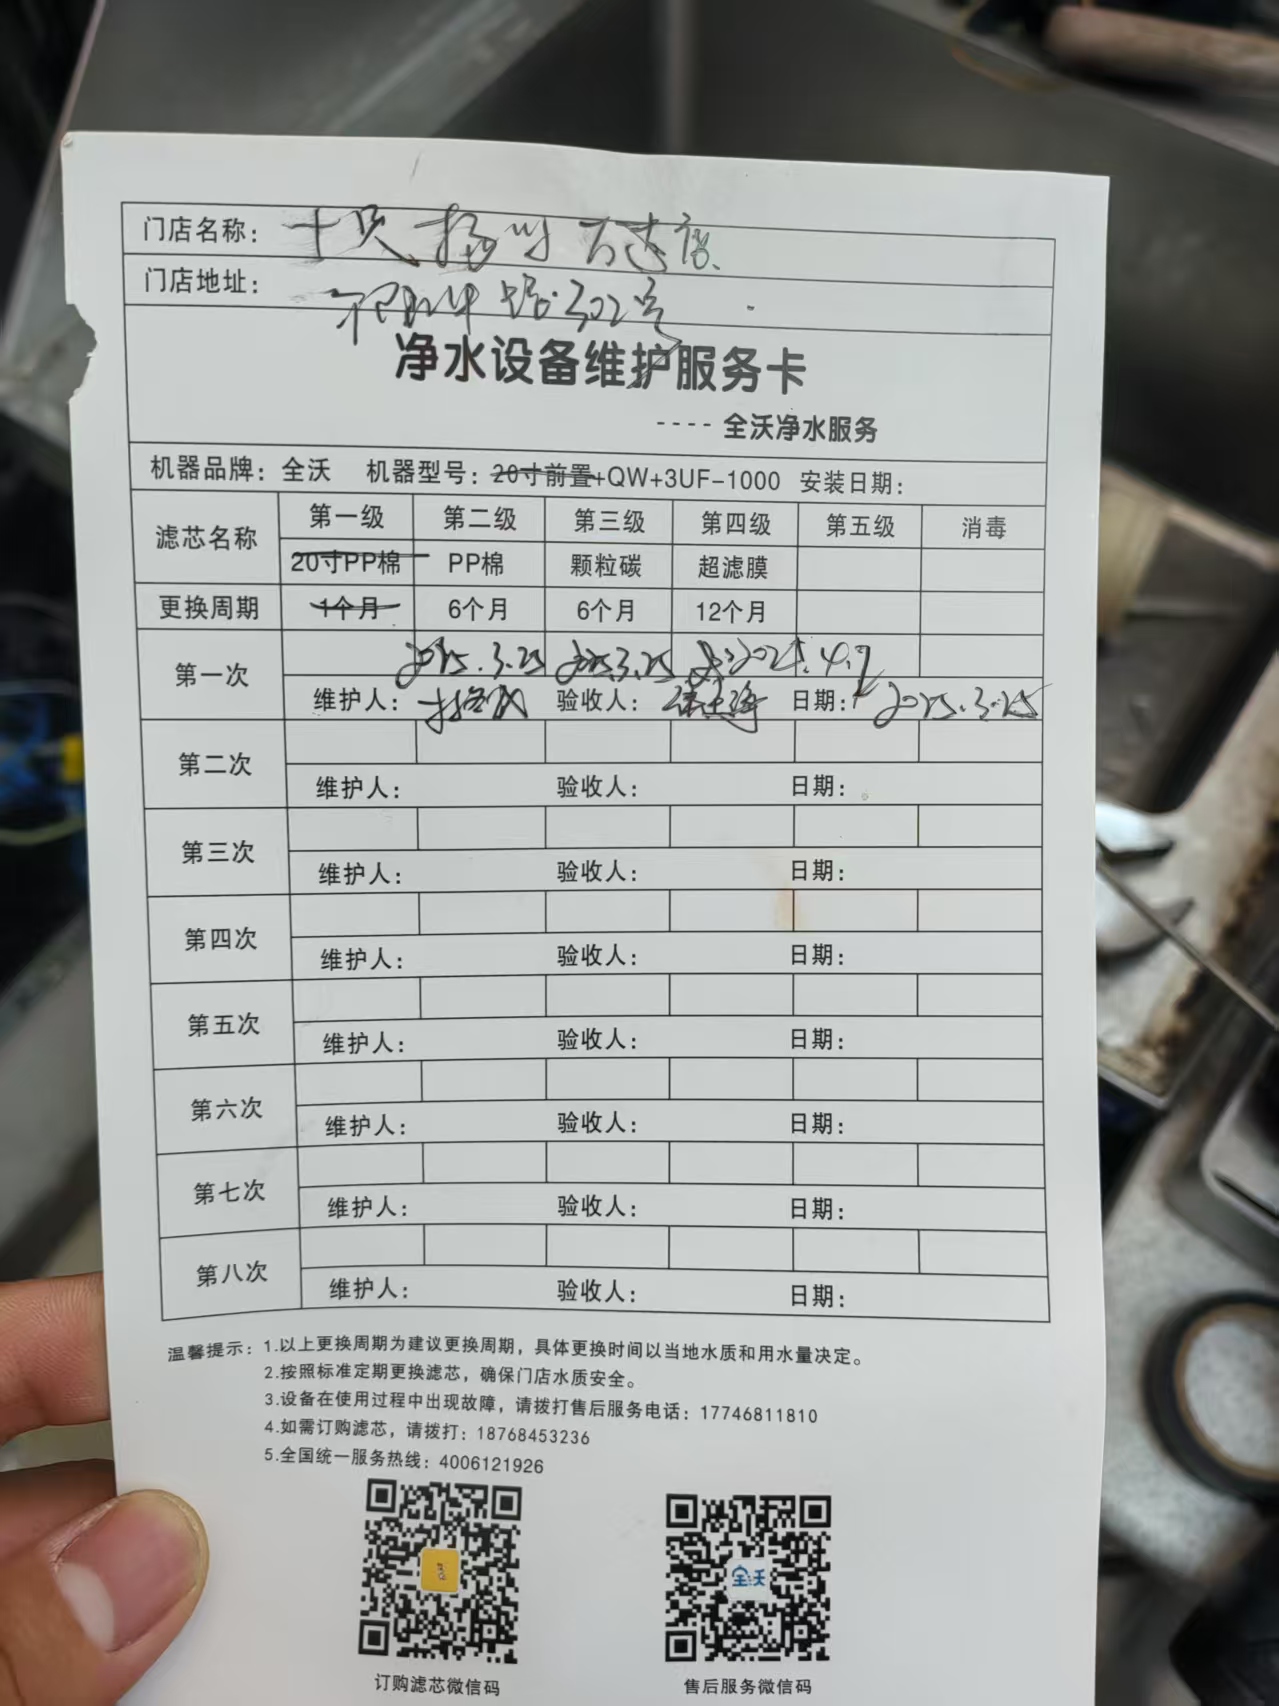 门店名称：
门店地址： 302号
净水设备维护服务卡
---- 全沃净水服务
机器品牌：全沃 机器型号：20寸前置+QW+3UF-1000 安装日期：
滤芯名称 第一级 第二级 第三级 第四级 第五级 消毒
20寸PP棉 PP棉 颗粒碳 超滤膜
更换周期 1个月 6个月 6个月 12个月
第一次 2025.3.25 2025.3.25
维护人： 验收人： 日期： 2025.3.25
第二次
维护人： 验收人： 日期：
第三次
维护人： 验收人： 日期：
第四次
维护人： 验收人： 日期：
第五次
维护人： 验收人： 日期：
第六次
维护人： 验收人： 日期：
第七次
维护人： 验收人： 日期：
第八次
维护人： 验收人： 日期：
温馨提示：1.以上更换周期为建议更换周期，具体更换时间以当地水质和用水量决定。
2.按照标准定期更换滤芯，确保门店水质安全。
3.设备在使用过程中出现故障，请拨打售后服务电话：17746811810
4.如需订购滤芯，请拨打：18768453236
5.全国统一服务热线：4006121926
全沃
订购滤芯微信码 售后服务微信码